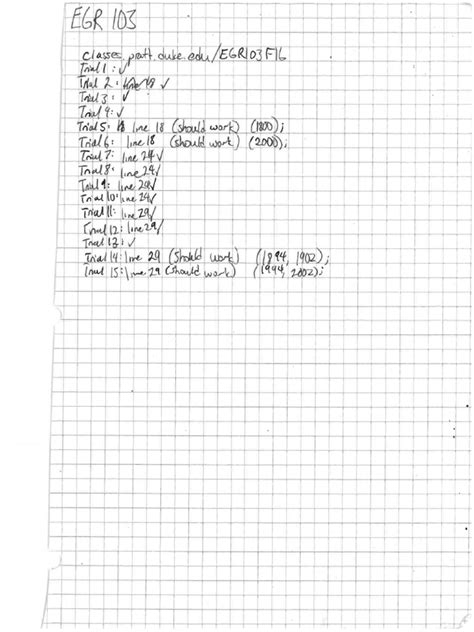 EGR 103
classes.pratt.duke.edu/EGR103F16
Trial 1: ✓
Trial 2: ✓
Trial 3: ✓
Trial 4: ✓
Trial 5: line 18 (should work) (1800);
Trial 6: line 18 (should work) (2000);
Trial 7: line 24 ✓
Trial 8: line 24 ✓
Trial 9: line 29 ✓
Trial 10: line 24 ✓
Trial 11: line 29 ✓
Trial 12: line 29 ✓
Trial 13: ✓
Trial 14: line 29 (should work) (1894, 1902);
Trial 15: line 29 (should work) (1994, 2002);